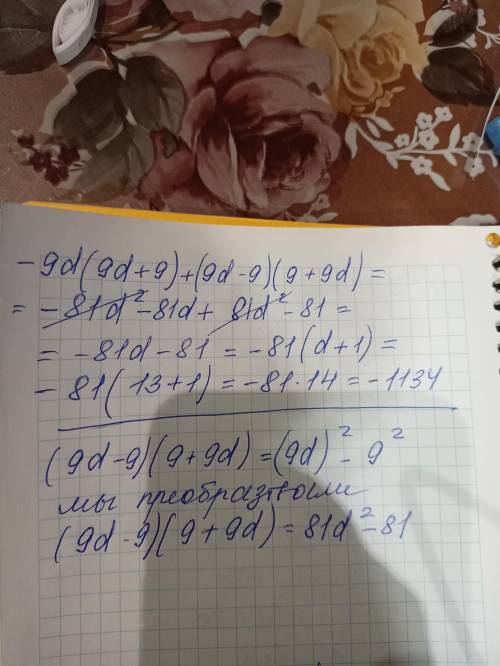 -9d(9d+9)+(9d-9)(9+9d)=
= -81d²-81d+ 81d²-81=
= -81d-81 = -81(d+1)=
-81(13+1)=-81·14=-1134
(9d-9)(9+9d)=(9d)²-9²
мы преобразовали
(9d-9)(9+9d)=81d²-81